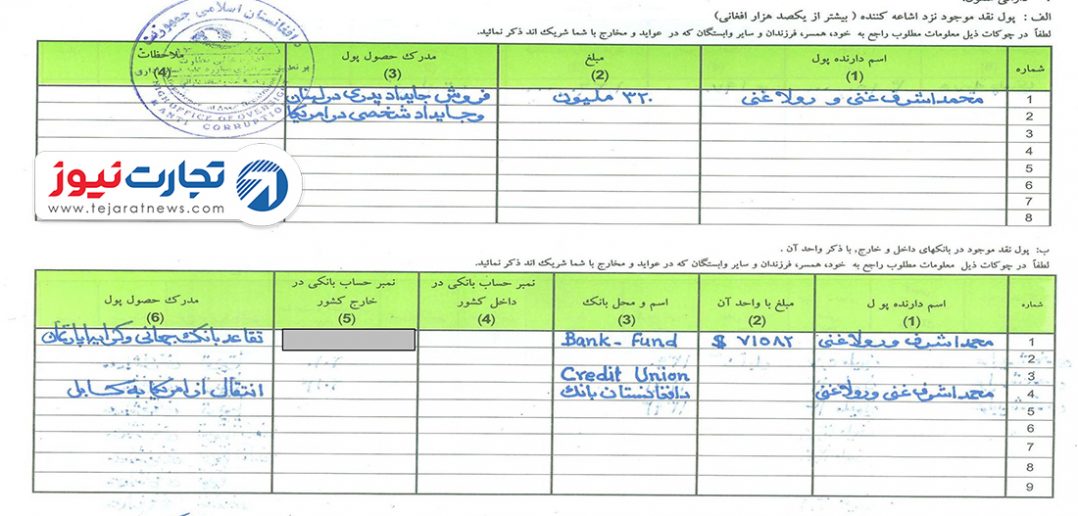 الف : پول نقد موجود نزد اشاعه کننده ( بیشتر از یکصد هزار افغانی)
لطفاً در چوکات ذیل معلومات مطلوب راجع به خود، همسر، فرزندان و سایر وابستگان که در عواید و مخارج با شما شریک اند ذکر نمائید.
شماره اسم دارنده پول مبلغ مدرک حصول پول ملاحظات
(1) (2) (3) (4)
1 محمداشرف غنی و رولا غنی ۳۲۰ ملیون فروش جایداد پدری در لبنان
2 وجایداد شخصی در امریکا
3
4
5
6
7
8
د افغانستان اسلامی جمهوریت
HIGH OFFICE OF OVERSIGHT
& ANTI CORRUPTION
تجارت نیوز
www.tejaratnews.com
ب: پول نقد موجود در بانکهای داخل و خارج, با ذکر واحد آن .
لطفاً در چوکات ذیل معلومات مطلوب راجع به خود، همسر، فرزندان و سایر وابستگان که در عواید و مخارج با شما شریک اند ذکر نمائید.
شماره اسم دارنده پو ل مبلغ با واحد آن اسم و محل بانک نمبر حساب بانکی در داخل کشور نمبر حساب بانکی در خارج کشور مدرک حصول پول
(1) (2) (3) (4) (5) (6)
1 محمداشرف ورولاغنی $ ۷۱۵۸۲ Bank - Fund تقاعد بانک جهانی وکرایه اپارتمان
2
3 Credit Union
4 محمداشرف غنی ورولاغنی دافغانستان بانک انتقال از امریکا به کابل
5
6
7
8
9